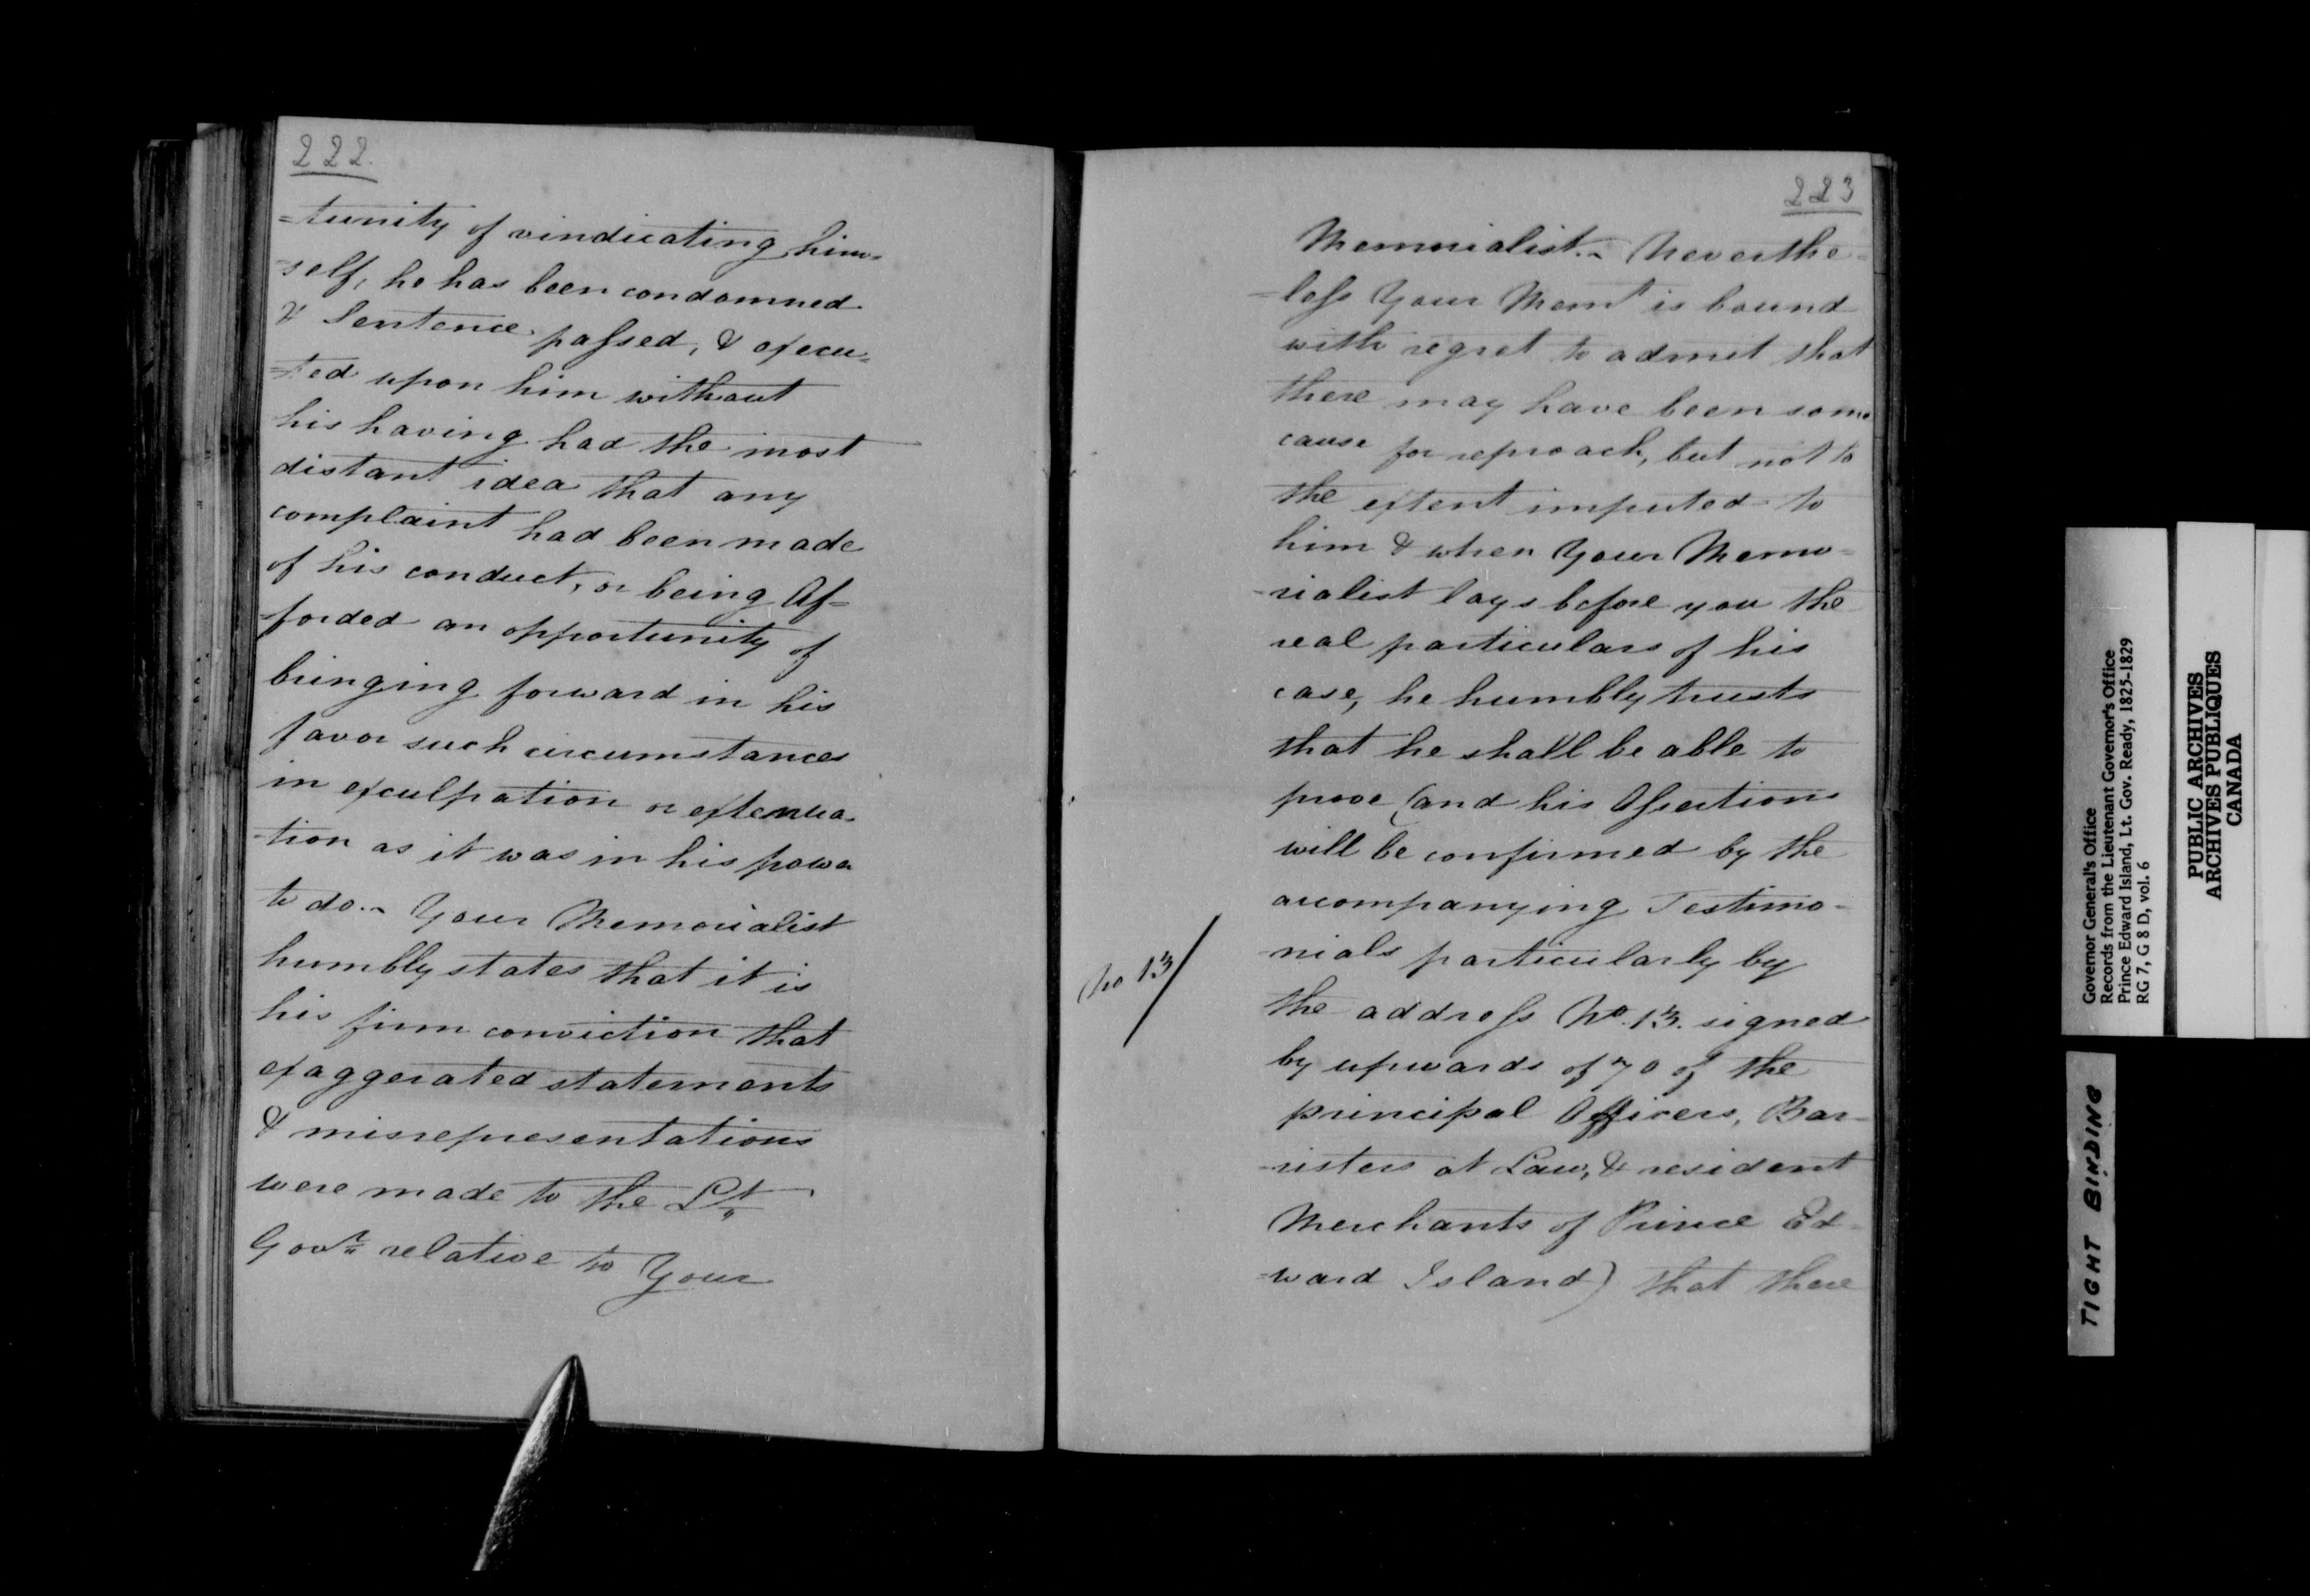 222.
=tunity of vindicating him=
=self, he has been condemned
& Sentence passed, & execu=
=ted upon him without
his having had the most
distant idea that any
complaint had been made
of his conduct, or being Af=
-forded an opportunity of
bringing forward in his
favor such circumstances
in exculpation or extenua-
-tion as it was in his power
to do.- Your Memorialist
humbly states that it is
his firm conviction that
exaggerated statements
& misrepresentations
were made to the Lt
Govr relative to Your
223
Memorialist.- Neverthe=
=less Your Memt is bound
with regret to admit that
there may have been some
cause for reproach, but not to
the extent imputed to
him & when Your Memo=
-rialist lays before you the
real particulars of his
case, he humbly trusts
that he shall be able to
prove (and his Assertions
will be confirmed by the
accompanying Testimo-
-nials particularly by
No 13/
the address No. 13. signed
by upwards of 70 of the
principal Officers, Bar-
-risters at Law, & resident
Merchants of Prince Ed-
=ward Island) that there
Governor General's Office
Records from the Lieutenant Governor's Office
Prince Edward Island, Lt. Gov. Ready, 1825-1829
RG 7, G 8 D, vol. 6
PUBLIC ARCHIVES
ARCHIVES PUBLIQUES
CANADA
TIGHT BINDING